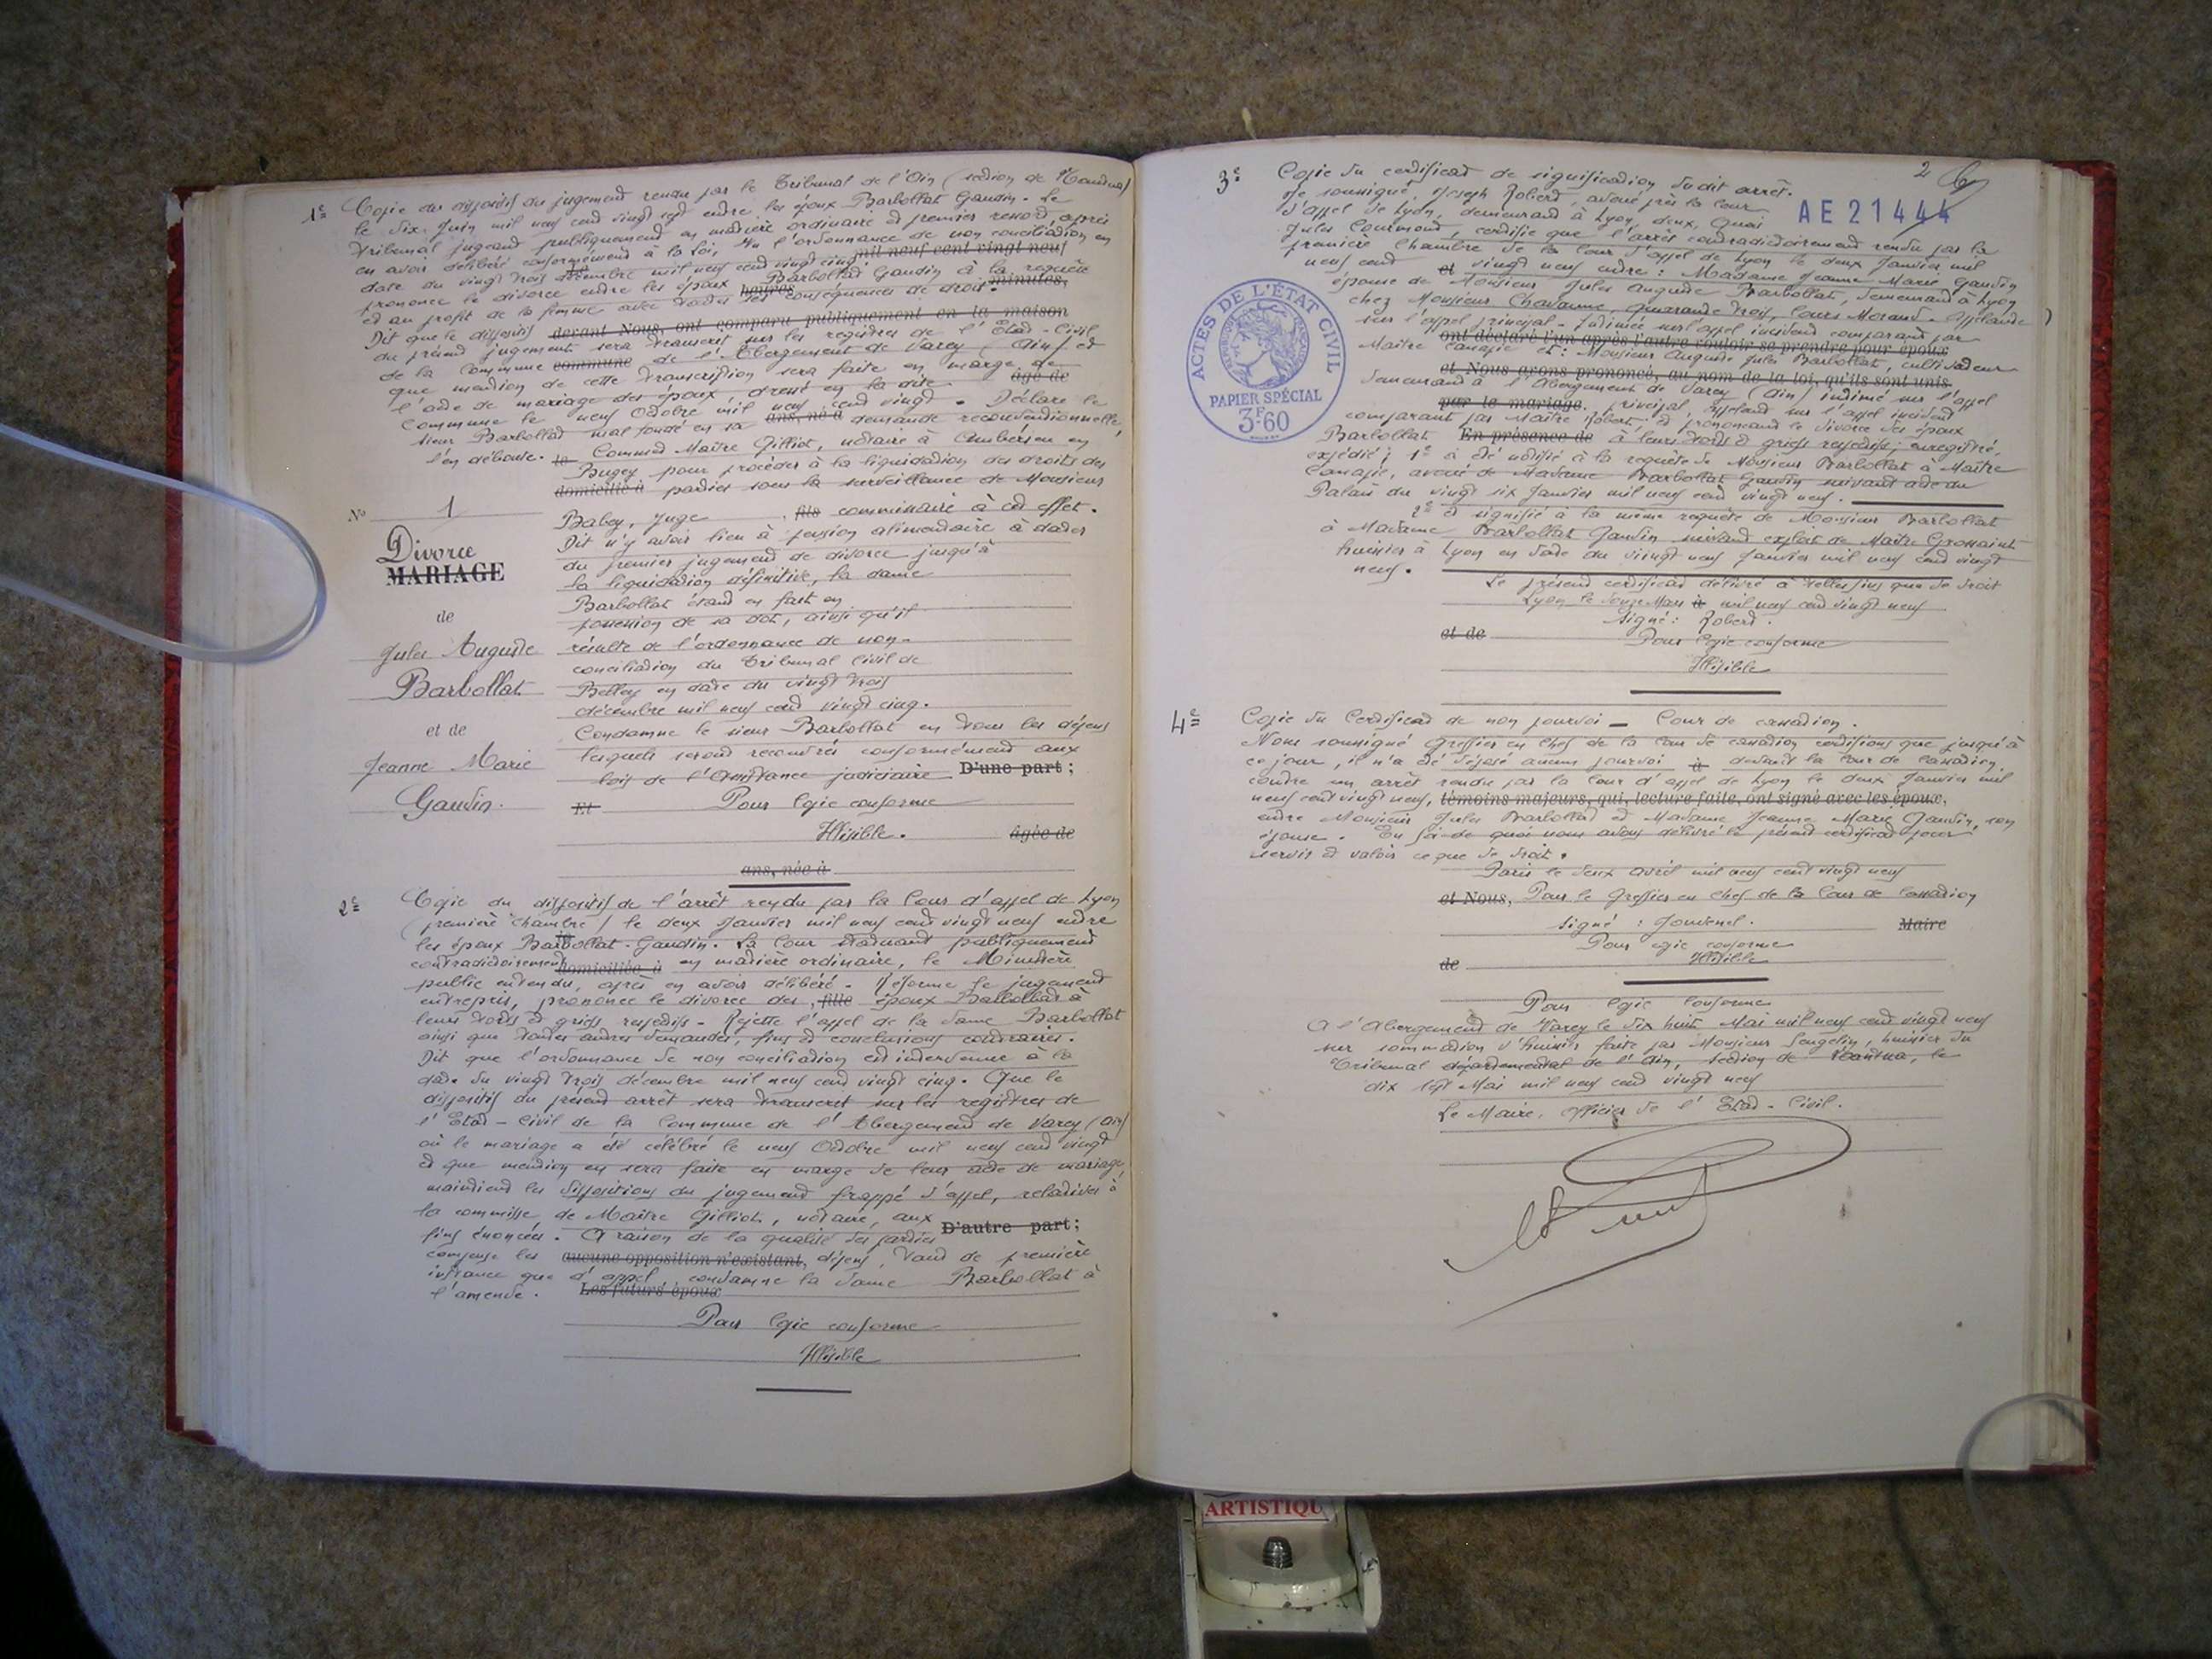 1e Copie du dispositif du jugement rendu par le Tribunal de l'Ain (section de Nantua)
le six Juin mil neuf cent vingt sept entre les époux Barbollat Gaudin. Le
Tribunal jugeant publiquement en matière ordinaire et premier ressort, après
en avoir délibéré conformément à la loi, Vu l'ordonnance de non conciliation en
date du vingt trois décembre mil neuf cent vingt cinq mil neuf cent vingt neuf
prononce le divorce entre les époux Barbollat Gaudin à la requête
et au profit de la femme avec toutes heures ses conséquences de droit. minutes,
Dit que le dispositif devant Nous, ont comparu publiquement en la maison
du présent jugement sera transcrit sur les registres de l'Etat-Civil
de la Commune commune de l'Abergement de Varey (Ain) et
que mention de cette transcription sera faite en marge de
l'acte de mariage des époux, dressé en la dite âgé de
Commune le neuf Octobre mil neuf cent vingt. Déclare le
sieur Barbollat mal fondé en sa ans, né à demande reconventionnelle,
l'en déboute. le Commet Maître Gilliot, notaire à Ambérieu en
Bugey pour procéder à la liquidation des droits des
domicilié à parties sous la surveillance de Monsieur
No 1 Babey, Juge, fils commissaire à cet effet.
Dit n'y avoir lieu à pension alimentaire à dater
Divorce
MARIAGE
du premier jugement de divorce jusqu'à
la liquidation définitive, la dame
Barbollat étant en fait en
de
possession de sa dot, ainsi qu'il
Jules Auguste résulte de l'ordonnance de non-
conciliation du Tribunal Civil de
Barbollat Belley en date du vingt trois
décembre mil neuf cent vingt cinq.
et de Condamne le sieur Barbollat en tous les dépens
lesquels seront recouvrés conformément aux
Jeanne Marie lois de l'Assistance judiciaire D'une part;
Gaudin. Et Pour Copie conforme
Illisible. âgée de
ans, née à
2e Copie du dispositif de l'arrêt rendu par la Cour d'appel de Lyon
(première chambre) le deux Janvier mil neuf cent vingt neuf entre
les époux Barbollat-Gaudin. La Cour statuant publiquement
contradictoirement domiciliée à en matière ordinaire, le Ministère
public entendu, après en avoir délibéré - Réforme le jugement
entrepris, prononce le divorce des, fille époux Barbollat à
leurs torts et griefs respectifs - Rejette l'appel de la dame Barbollat
ainsi que toutes autres demandes, fins et conclusions contraires.
Dit que l'ordonnance de non conciliation est intervenue à la
date du vingt trois décembre mil neuf cent vingt cinq. Que le
dispositif du présent arrêt sera transcrit sur les registres de
l'Etat-Civil de la Commune de l'Abergement de Varey (Ain)
où le mariage a été célébré le neuf Octobre mil neuf cent vingt
et que mention en sera faite en marge de leur acte de mariage,
maintient les dispositions du jugement frappé d'appel, relatives à
la commise de Maître Gilliot, notaire, aux
fins énoncées. A raison de la qualité des parties D'autre part;
compense les aucune opposition n'existant, dépens, tant de première
instance que d'appel condamne la dame Barbollat à
l'amende. Les futurs époux
Pour Copie conforme
Illisible
2
3e Copie du certificat de signification dudit arrêt.
Je soussigné Joseph Robert, avoué près la Cour
d'appel de Lyon, demeurant à Lyon, deux, Quai AE 21444
Jules Courmont, certifie que l'arrêt contradictoirement rendu par la
première Chambre de la Cour d'appel de Lyon le deux Janvier mil
neuf cent et vingt neuf entre: Madame Jeanne Marie Gaudin
épouse de Monsieur Jules Auguste Barbollat, demeurant à Lyon
chez Monsieur Chavanne, quarante trois, Cours Morand. Appelante
sur l'appel principal - Intimée sur l'appel incident comparant par
ont déclaré l'un après l'autre vouloir se prendre pour époux
Maître Canapie et: Monsieur Auguste Jules Barbollat, cultivateur
et Nous avons prononcé, au nom de la loi, qu'ils sont unis
demeurant à l'Abergement de Varey (Ain) intimé sur l'appel
par le mariage. principal, appelant sur l'appel incident
comparant par Maître Robert, et prononçant le divorce des époux
Barbollat En présence de à leurs torts et griefs respectifs; enregistré,
expédié; 1° a été notifié à la requête de Monsieur Barbollat à Maître
Canapie, avoué de Madame Barbollat Gaudin suivant acte du
Palais du vingt six Janvier mil neuf cent vingt neuf.
2° et signifié à la même requête de Monsieur Barbollat
à Madame Barbollat Gaudin suivant exploit de Maître Grossaint
huissier à Lyon en date du vingt neuf Janvier mil neuf cent vingt
neuf.
Le présent certificat délivré à telles fins que de droit
Lyon le douze Mars à mil neuf cent vingt neuf
Signé: Robert.
et de Pour Copie conforme
Illisible
ACTES DE L'ÉTAT CIVIL
RÉPUBLIQUE FRANÇAISE
PAPIER SPÉCIAL
3F60
4e Copie du Certificat de non pourvoi - Cour de cassation.
Nous soussigné Greffier en Chef de la Cour de cassation certifions que jusqu'à
ce jour, il n'a été déposé aucun pourvoi à devant la Cour de Cassation
contre un arrêt rendu par la Cour d'appel de Lyon le deux Janvier mil
neuf cent vingt neuf, témoins majeurs, qui, lecture faite, ont signé avec les époux,
entre Monsieur Jules Barbollat et Madame Jeanne Marie Gaudin, son
épouse. En foi de quoi nous avons délivré le présent certificat pour
servir et valoir ce que de droit.
Paris le deux avril mil neuf cent vingt neuf
et Nous, Pour le Greffier en chef de la Cour de Cassation
Signé: Jouvenel. Maire
Pour copie conforme
de Illisible
Pour Copie Conforme
A l'Abergement de Varey le dix huit Mai mil neuf cent vingt neuf
sur sommation d'huissier faite par Monsieur Sengelin, huissier du
Tribunal départemental de l'Ain, section de Nantua, le
dix sept Mai mil neuf cent vingt neuf
Le Maire, Officier de l'Etat-Civil.
ARTISTIQU